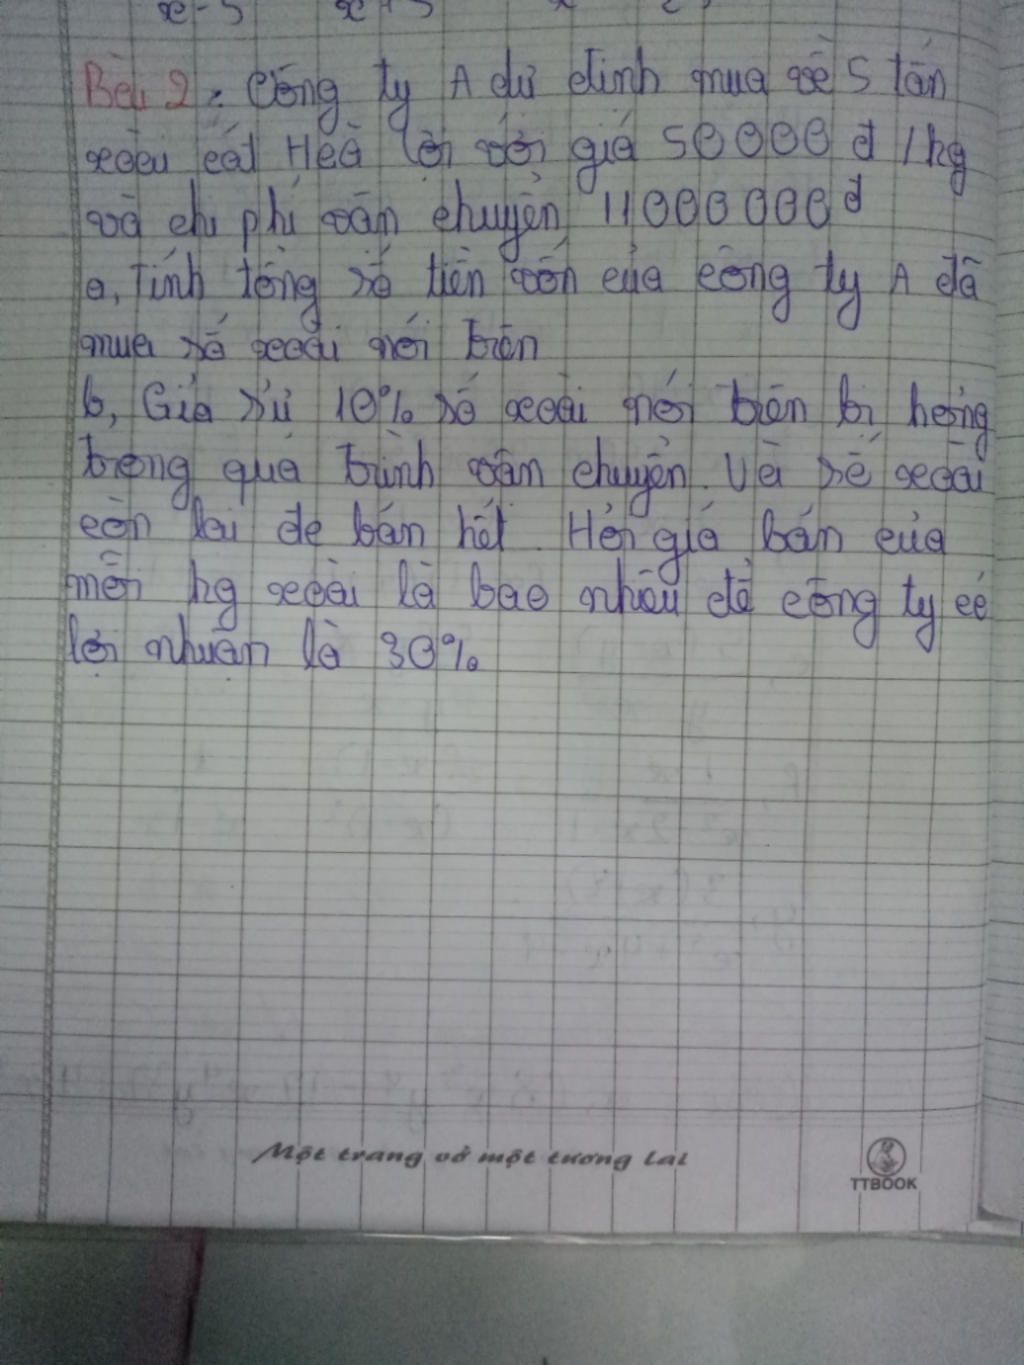 Bài 2: Công ty A dự định mua về 5 tấn
xoài cát Hoà lời với giá 50000 đ / kg
và chi phí vận chuyển 11000 000 đ
a, Tính tổng số tiền vốn của công ty A đã
mua số xoài nói trên
b, Giả sử 10% số xoài nói trên bị hỏng
trong quá trình vận chuyển. Và số xoài
còn lại đẻ bán hết. Hỏi giá bán của
mỗi kg xoài là bao nhiêu để công ty có
lợi nhuận là 30%
Một trang vở một tương lai
TTBOOK